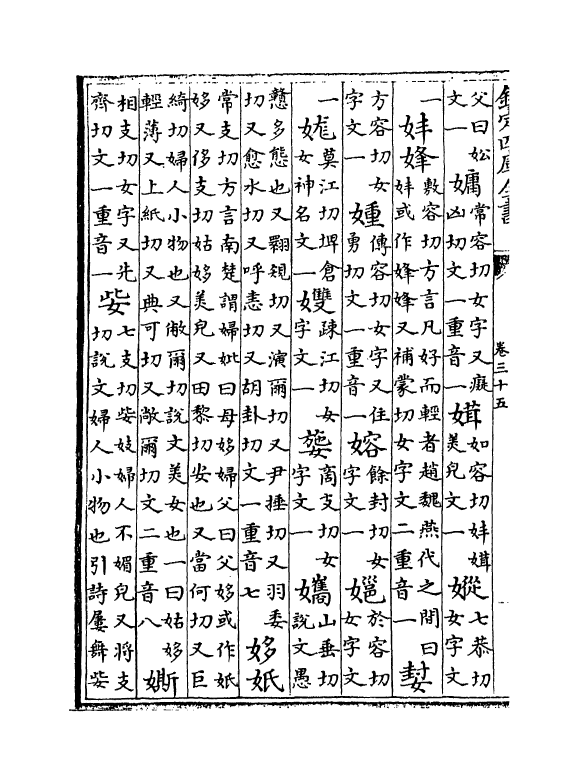 欽定四庫全書 卷三十五
父曰妐文一 嫞常容切女字又癡凶切文一重音一 媶如容切妦媶美皃文一 㜡七恭切女字文
一 妦㛔敷容切方言凡好而輕者趙魏燕代之間曰妦或作㛔㛔又補蒙切女字文二重音一
方容切女字文一 媑傳容切女字又住勇切文一重音一 嫆餘封切女字文一 於容切女字文
一 娏莫江切埤倉女神名文一 孇疎江切女字文一 商支切女字文一 孈山垂切說文愚
戇多態也又翾規切又演爾切又尹捶切又羽委切又愈水切又呼恚切又胡卦切文一重音七 姼
常支切方言南楚謂婦妣曰母姼婦父曰父姼或作姼又侈支切姑姼美皃又田黎切安也又當何切又巨
綺切婦人小物也又敞爾切說文美女也一曰姑姼輕薄又上紙切又典可切又敞爾切文二重音八
相支切女字又先齊切文一重音一 姕七支切姕妓婦人不媚皃又將支切說文婦人小物也引詩屢舞姕